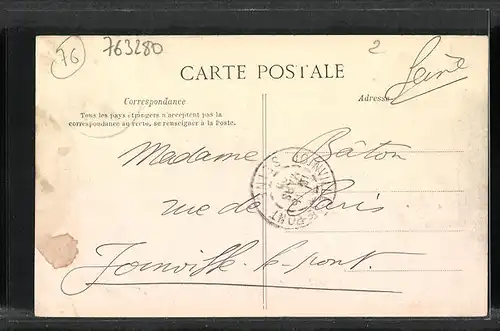 76
763280
2
Seine
CARTE POSTALE
Correspondance
Adresse
Tous les pays étrangers n'acceptent pas la
correspondance au recto, se renseigner à la Poste.
Madame Bâton
rue de Paris
Joinville-le-pont.